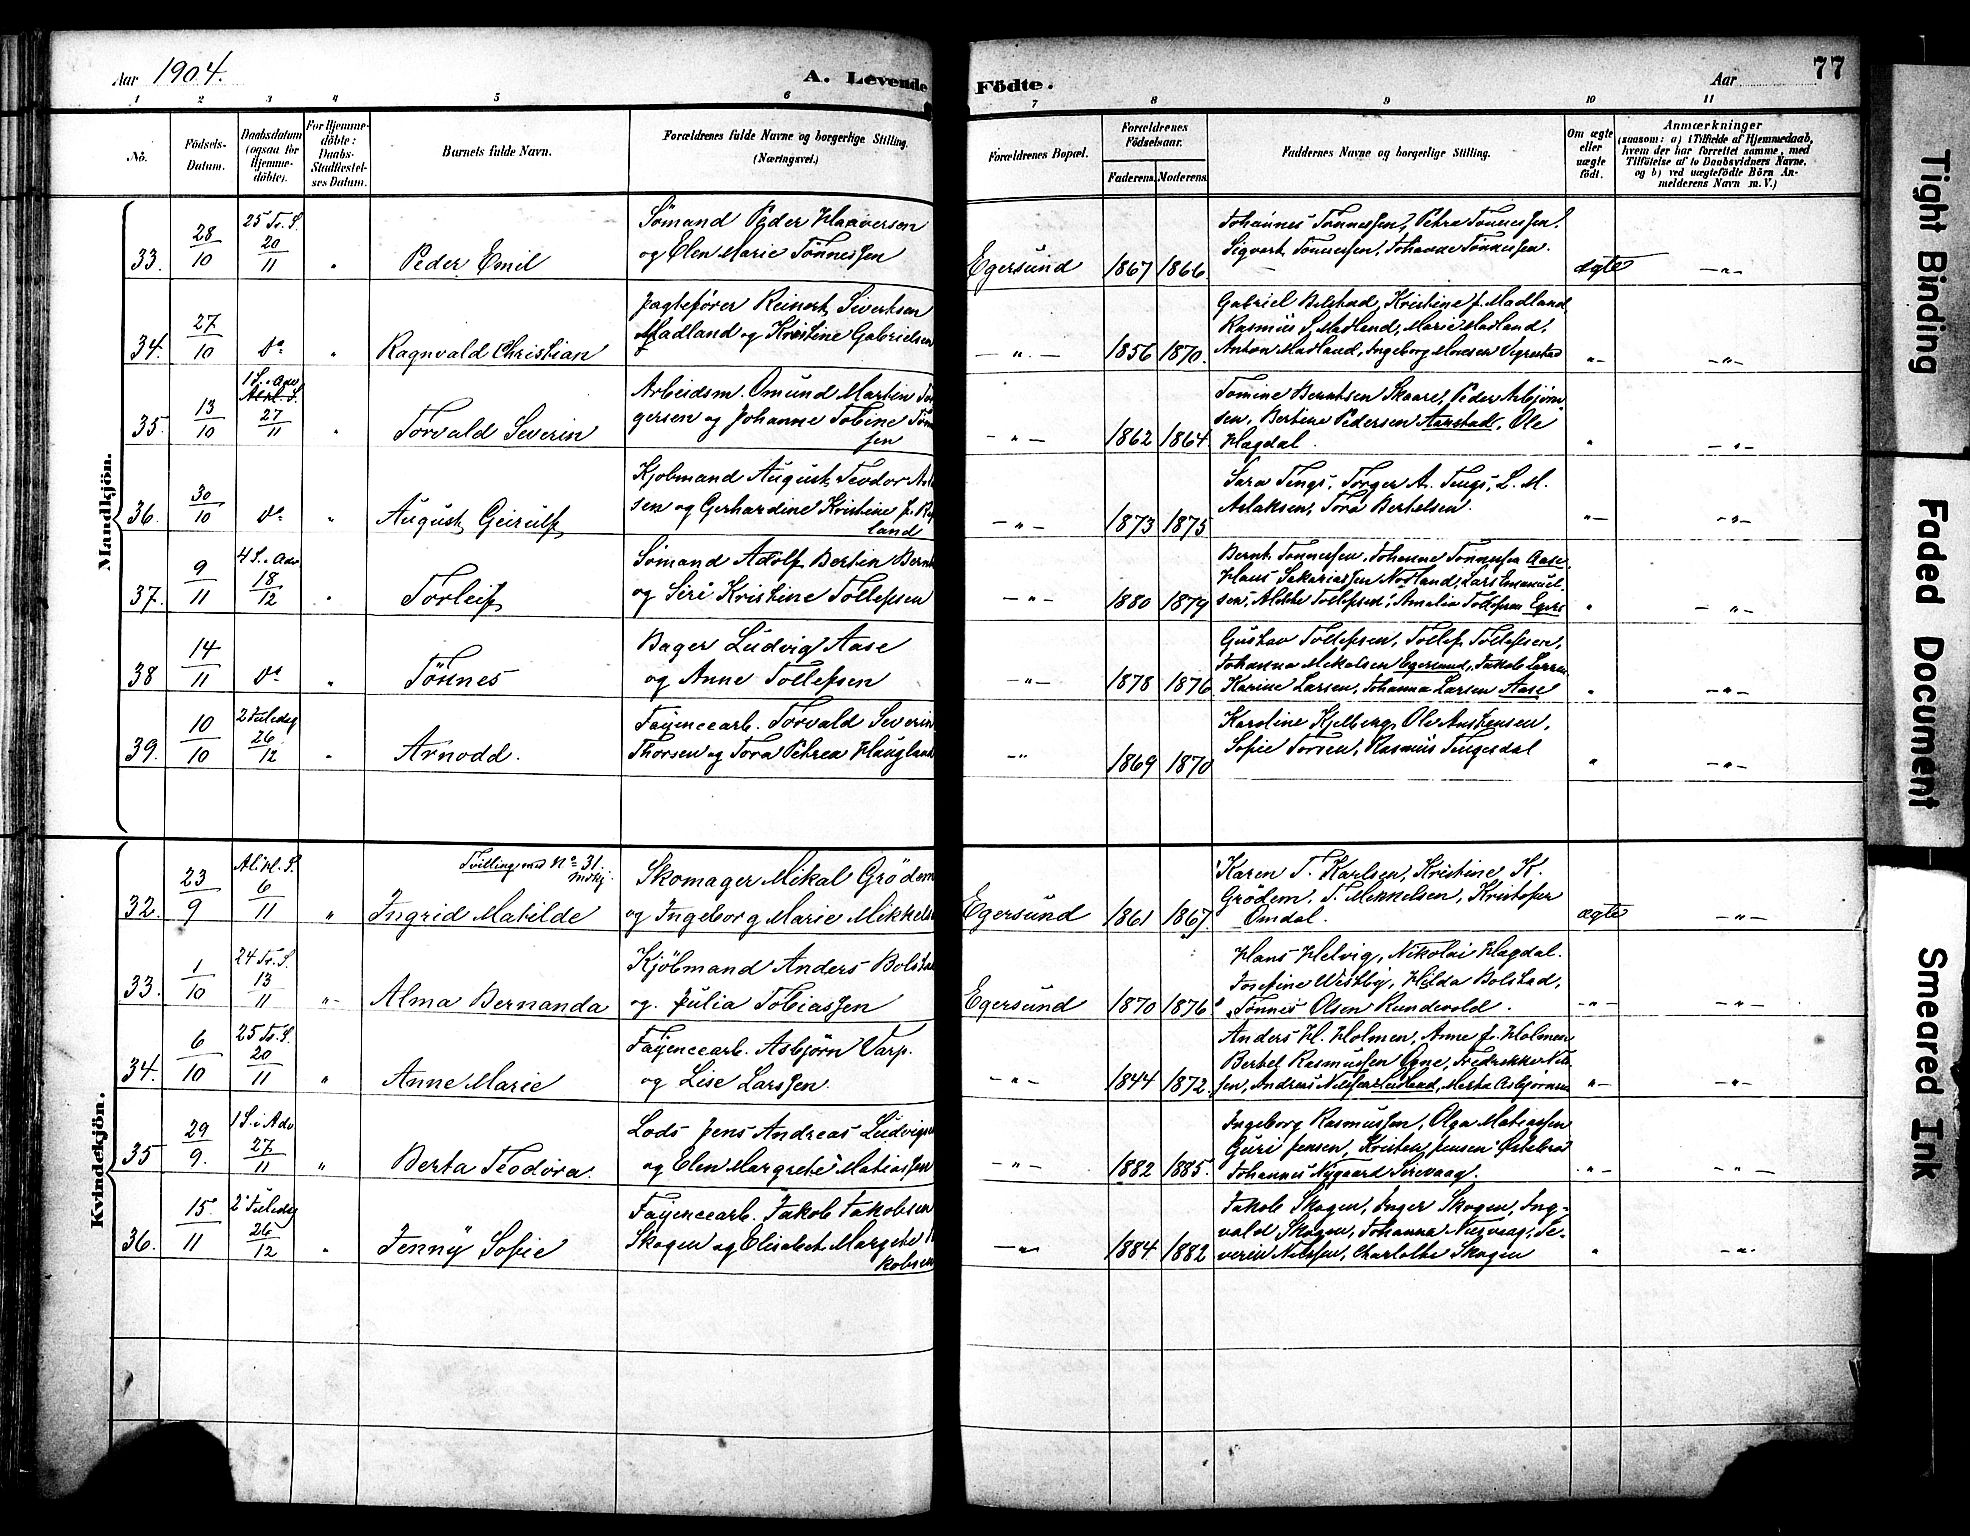 Aar 1904.
A. Levende Födte.
Aar 77
1 2 3 4 5 6 7 8 9 10 11
No.
Födsels-Datum.
Daabsdatum (ogsaa for Hjemme-döbte).
For Hjemme-döbte: Daabs-Stadfæstel-ses Datum.
Barnets fulde Navn.
Forældrenes fulde Navne og borgerlige Stilling. (Næringsvei.)
Forældrenes Bopæl.
Forældrenes Födselsaar.
Faderens. Moderens.
Faddernes Navne og borgerlige Stilling.
Om ægte eller uægte födt.
Anmærkninger
(saasom: a) i Tilfælde af Hjemmedaab,
hvem der har forrettet samme, med
Tilföielse af to Daabsvidners Navne.
og b) ved uægtefödte Börn An-
melderens Navn m. V.)
Mandkjön.
33. 28/10 25 Tr. S. 20/11 " Peder Emil
Sömand Peder Haaversen
og Elen Marie Tönnessen
Egersund 1867 1866
Johannes Tönnessen, Petra Tönnessen,
Sigvart Tönnessen, Johanne Tönnessen.
ægte — " —
34. 27/10 do " Ragnvald Christian
Jagtefører Reinert Sivertsen
Madland og Kristine Gabrielsen
— " — 1856 1870.
Gabriel Bilstad, Kristine f. Madland
Rasmus S. Madland, Marie Madland,
Anton Madland, Ingeborg Monsen Vigrestad
" — — " —
35. 13/10 1 S. i Adv. 27/11 " Torvald Severin
Arbeidsm. Omund Martin Tor
gersen og Johanne Tobine Tönne
sen
— " — 1862 1864
Tomine Berntsen Skaare, Peder Asbjørn
sen, Bertine Pedersen Aarstad, Ole
Hagdal.
" — " —
36. 30/10 do " August Geirulf
Kjøbmand August Teodor
sen og Gerhardine Kristine f.
land
— " — 1873 1875
Sara Tengs, Torger A. Tengs, L. M.
Aslaksen, Tora Bertelsen.
" — — " —
37. 9/11 4 S. i Adv 18/12 " Torleif
Sömand Adolf Bertin Bernt
og Siri Kristine Tollefsen
— " — 1880 1879
Bernt Tönnessen, Johanne Tönnessen Aase,
Hans Sakariassen Nodland, Lars Emanuel
sen, Tollefsen, Amalia Tollefsen Egers
" — " —
38 14/11 do " Tönnes
Bager Ludvig Aase
og Anne Tollefsen
— " — 1878 1876
Gustav Tollefsen, Tollef Tollefsen,
Johanna Mikalsen Egersund, Jakob Larsen
Karine Larsen, Johanna Larsen Aase
" — " —
39. 10/10 2 Juledag 26/12 " Arnodd.
Fayencearb. Torvald Severin
Thorsen og Tora Petrea Haugland
— " 1869 1870
Karoline Kjelberg, Ole Austensen,
Sofie Torsen, Rasmus Tengesdal
" — " —
Kvindekjön.
32. 23/9 Al. Hl. S. 6/11 " Tvilling med No 31. Mdkj.
Ingrid Matilde
Skomager Mikal Grödem
og Ingeborg Marie Mikkels
Egersund 1861 1867
Karen T. Karlsen, Kristine K.
Grödem, T. Mikkelsen, Kristofer
Omdal.
ægte — " —
33. 1/10 24 Tr. S. 13/11 " Alma Bernanda
Kjöbmand Anders Bolstad
og Julia Tobiassen
Egersund 1870 1876
Hans Helvig, Nikolai Hagdal.
Josefine Westby, Hilda Bolstad,
Tönnes Olsen Rundevold.
— " — — " —
34. 6/10 25 Tr. S. 20/11 " Anne Marie
Fayencearb. Asbjörn Varp.
og Lise Larssen.
— " — 1844 1872.
Anders H. Holmen, Anne f. Holmen
Bertel Rasmussen Ogne, Fredrikke Nils
sen, Andreas Nilssen, Marta Asbjørnsen
" — — " —
35 29/9. 1 S. i Adv 27/11 " Berta Teodora.
Lods Jens Andreas Ludvigsen
og Elen Margrete Matiassen
— " — 1882 1885.
Ingeborg Rasmussen, Olga Matiassen
Guri Jensen, Kristen Jensen Østebrø
Johannes Nygaard Sirevaag.
" — — " —
36. 15/11 2 Juledag 26/12 " Jenny Sofie
Fayencearb. Jakob Jakobsen
Skogen og Elisabet Margrete
kobsen
— " — 1884 1882
Jakob Skogen, Inger Skogen, Ing-
vald Skogen, Johanna Nugvaag, Se-
verin Nilssen, Charlotte Skogen
" — " —
Tight Binding
Faded Document
Smeared Ink